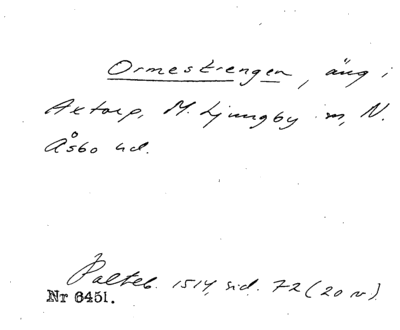 Ormestrengen, äng i
Axtorp, M. Ljungby sn, N.
Åsbo hd.
Palteb. 1514, sid. 72 (20 v).
Nr 6451.